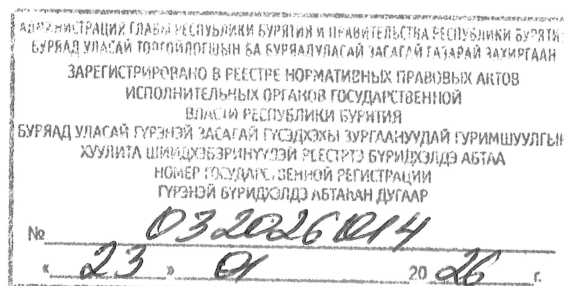 АДМИНИСТРАЦИЯ ГЛАВЫ РЕСПУБЛИКИ БУРЯТИЯ И ПРАВИТЕЛЬСТВА РЕСПУБЛИКИ БУРЯТИЯ
БУРЯАД УЛАСАЙ ТОЛГОЙЛОГШЫН БА БУРЯАД УЛАСАЙ ЗАСАГАЙ ГАЗАРАЙ ЗАХИРГААН
ЗАРЕГИСТРИРОВАНО В РЕЕСТРЕ НОРМАТИВНЫХ ПРАВОВЫХ АКТОВ
ИСПОЛНИТЕЛЬНЫХ ОРГАНОВ ГОСУДАРСТВЕННОЙ
ВЛАСТИ РЕСПУБЛИКИ БУРЯТИЯ
БУРЯАД УЛАСАЙ ГҮРЭНЭЙ ЗАСАГАЙ ГҮСЭДХЭХЫ ЗУРГААНУУДАЙ ГУРИМШУУЛГЫН
ХУУЛИТА ШИИДХЭБЭРИНҮҮДЭЙ РЕЕСТРТЭ БҮРИДХЭЛДЭ АБТАА
НОМЕР ГОСУДАРСТВЕННОЙ РЕГИСТРАЦИИ
ГҮРЭНЭЙ БҮРИДХЭЛДЭ АБТАҺАН ДУГААР
№ 032026014
« 23 » 01 20 26 г.